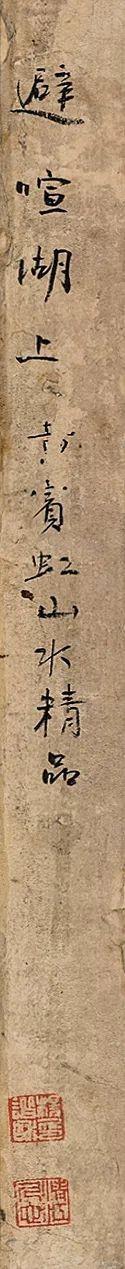 避喧湖上 黄賓虹山水精品